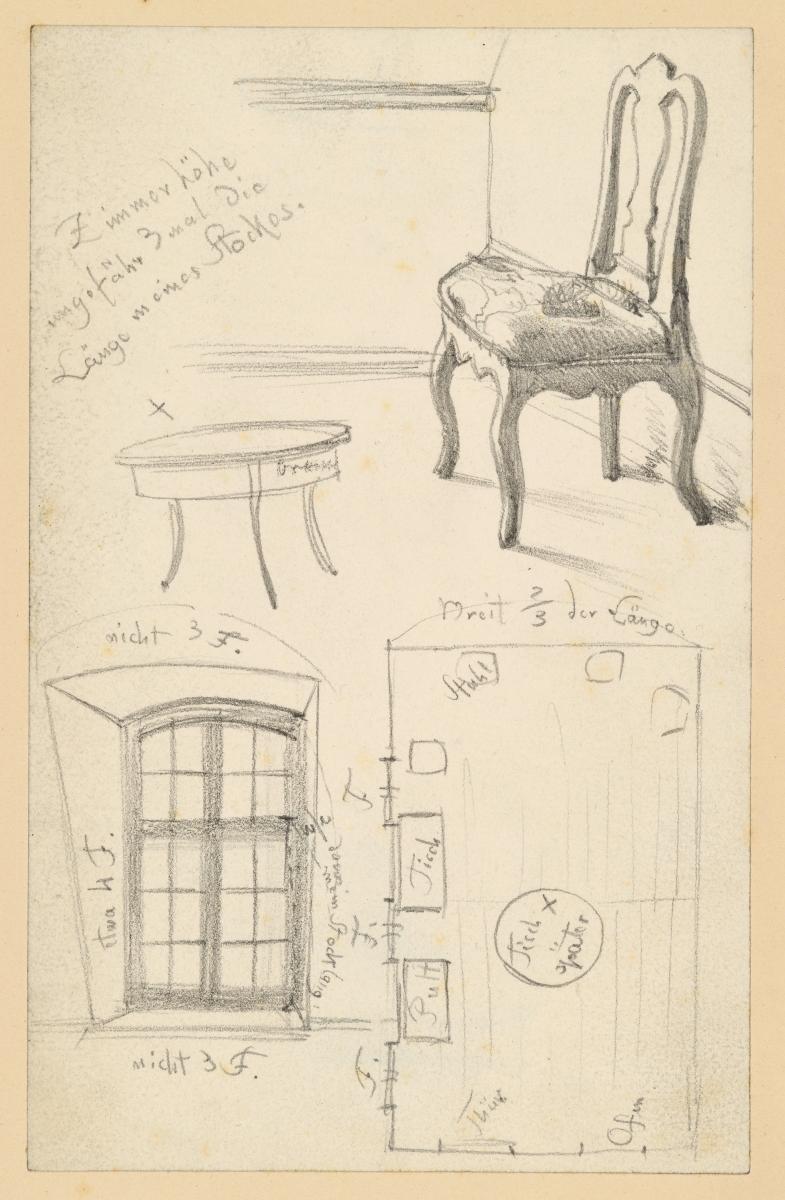 Zimmerhöhe
ungefähr 3 mal die
Länge meines Stockes.
x
nicht 3 F.
Breit 2/3 der Länge.
Stuhl
F
Tisch
etwa 4 F.
2/3
meiner
Stockläng:
F.
Tisch x
später
Pult
nicht 3 F.
F.
Thür
Ofen